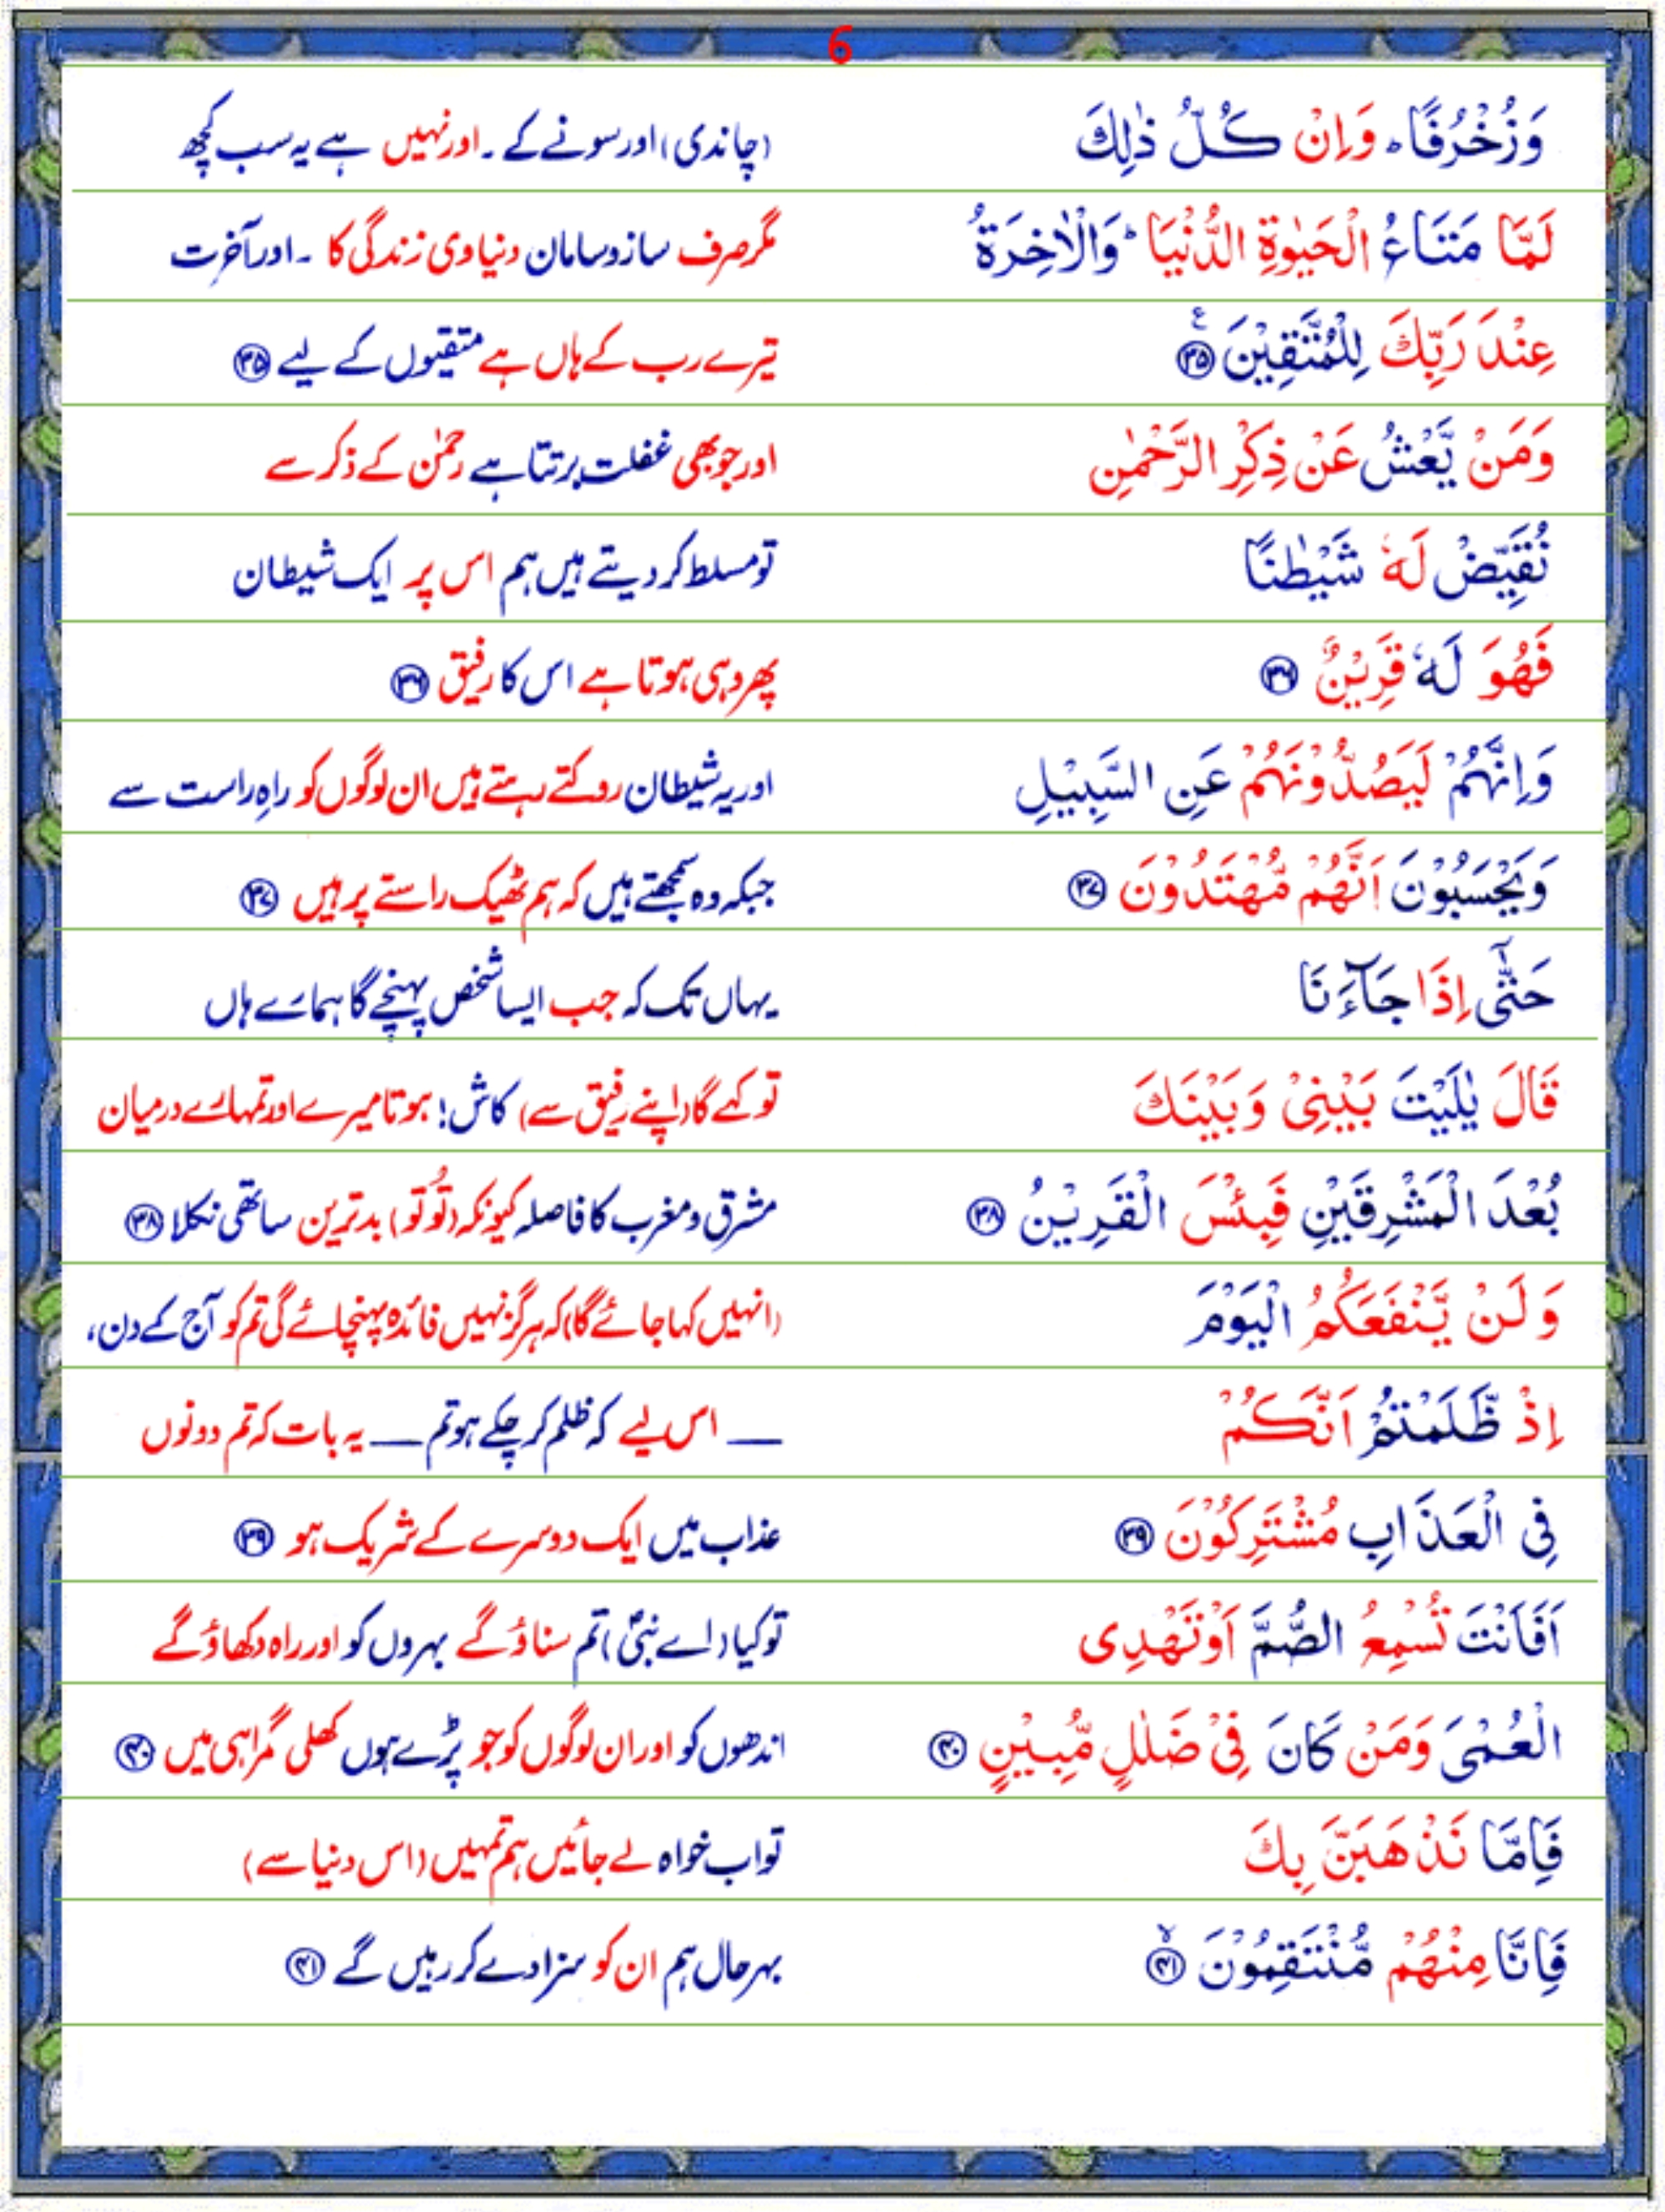 6
وَزُخْرُفًا ؕ وَاِنْ كُلُّ ذٰلِكَ (چاندی) اور سونے کے ۔ اور نہیں ہے یہ سب کچھ
لَمَّا مَتَاعُ الْحَيٰوةِ الدُّنْيَا ؕ وَالْاٰخِرَةُ مگر صرف سازو سامان دنیاوی زندگی کا ۔ اور آخرت
عِنْدَ رَبِّكَ لِلْمُتَّقِيْنَ ع ۳۵ تیرے رب کے ہاں ہے متقیوں کے لیے ۳۵
وَمَنْ يَّعْشُ عَنْ ذِكْرِ الرَّحْمٰنِ اور جو بھی غفلت برتتا ہے رحمٰن کے ذکر سے
نُقَيِّضْ لَهٗ شَيْطٰنًا تو مسلط کر دیتے ہیں ہم اس پر ایک شیطان
فَهُوَ لَهٗ قَرِيْنٌ ۳۶ پھر وہی ہوتا ہے اس کا رفیق ۳۶
وَاِنَّهُمْ لَيَصُدُّوْنَهُمْ عَنِ السَّبِيْلِ اور یہ شیطان روکتے رہتے ہیں ان لوگوں کو راہِ راست سے
وَيَحْسَبُوْنَ اَنَّهُمْ مُّهْتَدُوْنَ ۳۷ جبکہ وہ سمجھتے ہیں کہ ہم ٹھیک راستے پر ہیں ۳۷
حَتّٰٓى اِذَا جَآءَنَا یہاں تک کہ جب ایسا شخص پہنچے گا ہمارے ہاں
قَالَ يٰلَيْتَ بَيْنِىْ وَبَيْنَكَ تو کہے گا (اپنے رفیق سے) کاش! ہوتا میرے اور تمہارے درمیان
بُعْدَ الْمَشْرِقَيْنِ فَبِئْسَ الْقَرِيْنُ ۳۸ مشرق و مغرب کا فاصلہ کیونکہ (تُو تو) بدترین ساتھی نکلا ۳۸
وَلَنْ يَّنْفَعَكُمُ الْيَوْمَ (انہیں کہا جائے گا) کہ ہرگز نہیں فائدہ پہنچائے گی تم کو آج کے دن،
اِذْ ظَّلَمْتُمْ اَنَّكُمْ — اس لیے کہ ظلم کر چکے ہو تم — یہ بات کہ تم دونوں
فِى الْعَذَابِ مُشْتَرِكُوْنَ ۳۹ عذاب میں ایک دوسرے کے شریک ہو ۳۹
اَفَاَنْتَ تُسْمِعُ الصُّمَّ اَوْ تَهْدِى تو کیا (اے نبیؐ) تم سناؤ گے بہروں کو اور راہ دکھاؤ گے
الْعُمْىَ وَمَنْ كَانَ فِىْ ضَلٰلٍ مُّبِيْنٍ ۴۰ اندھوں کو اور ان لوگوں کو جو پڑے ہوں کھلی گمراہی میں ۴۰
فَاِمَّا نَذْهَبَنَّ بِكَ تو اب خواہ لے جائیں ہم تمہیں (اس دنیا سے)
فَاِنَّا مِنْهُمْ مُّنْتَقِمُوْنَ ۙ ۴۱ بہرحال ہم ان کو سزا دے کر رہیں گے ۴۱